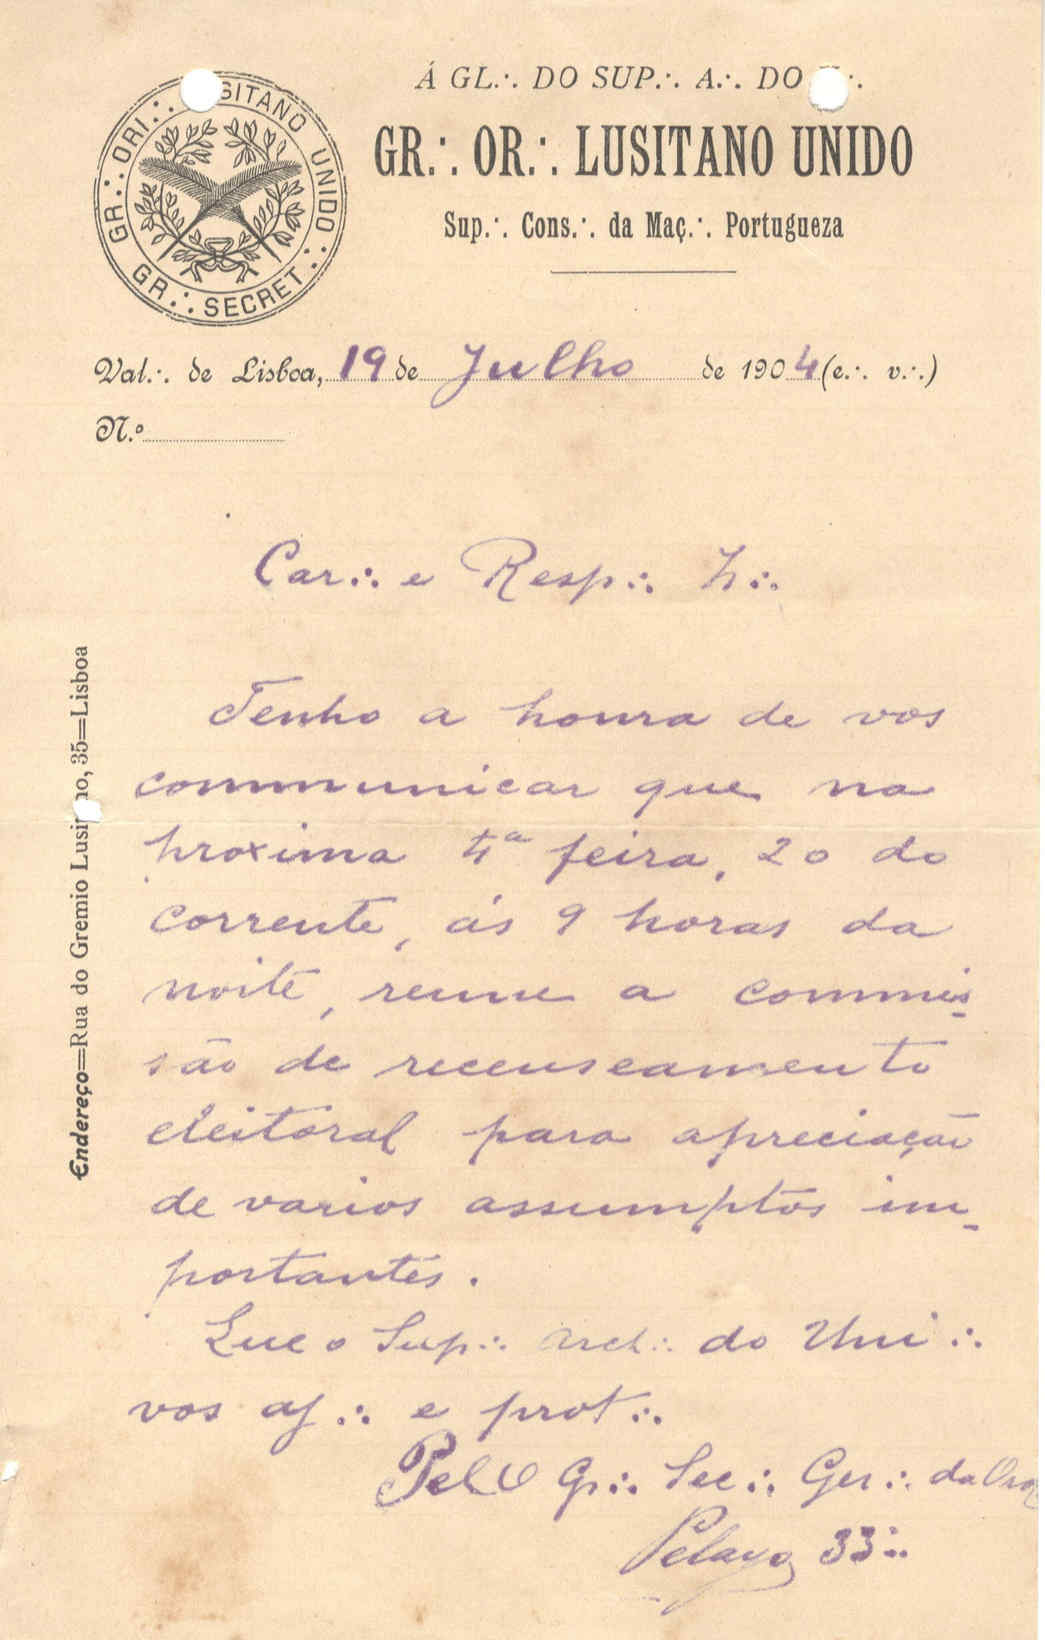 GR.˙. ORI.˙. LUSITANO UNIDO.˙.
GR.˙. SECRET.˙.
Á GL.˙. DO SUP.˙. A.˙. DO .˙.
GR.˙. OR.˙. LUSITANO UNIDO
Sup.˙. Cons.˙. da Maç.˙. Portugueza
Val.˙. de Lisboa, 19 de Julho de 1904 (e.˙. v.˙.)
N.º
Car.˙. e Resp.˙. I.˙.
Tenho a honra de vos
communicar que na
proxima 4ª feira, 20 do
corrente, ás 9 horas da
noite, reune a commis-
são de recenseamento
eleitoral para apreciação
de varios assumptos im-
portantes.
Que o Sup.˙. Arch.˙. do Uni.˙.
vos aj.˙. e prot.˙.
Pelo Gr.˙. Sec.˙. Ger.˙. da Ord
Pelayo 33.˙.
Endereço=Rua do Gremio Lusitano, 35=Lisboa